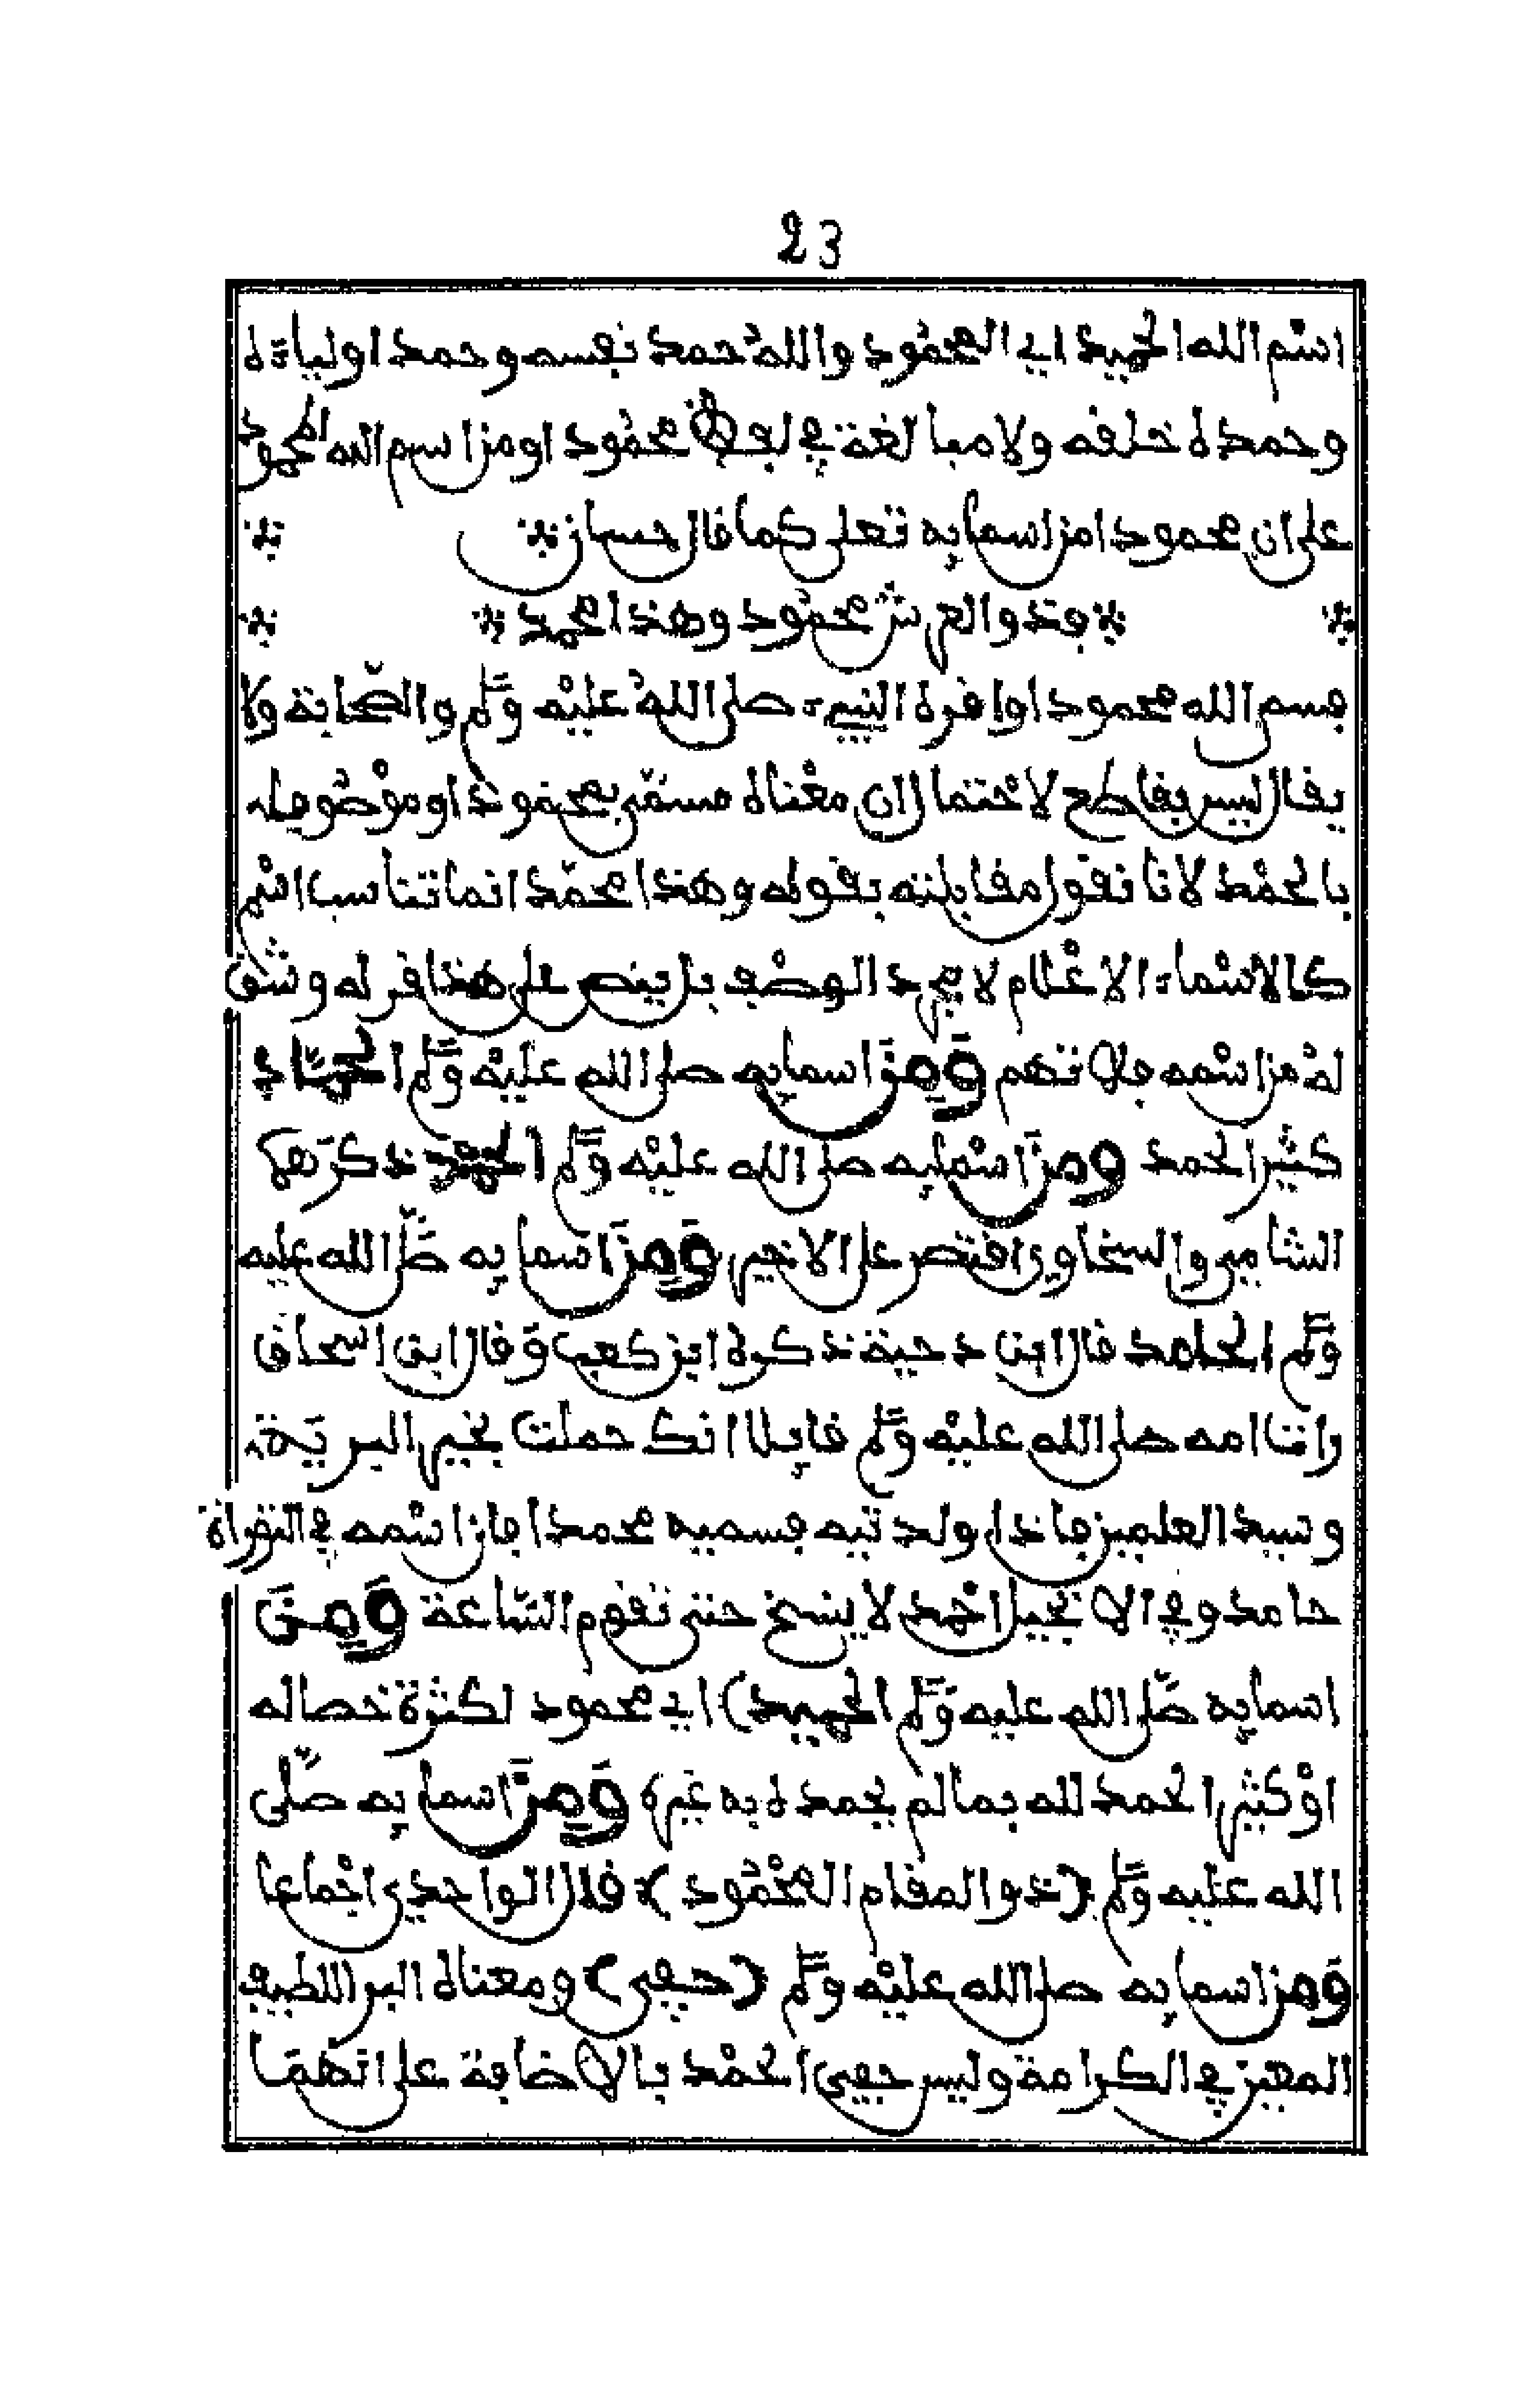 23
اسم الله الحميد اي المحمود والله حمد نفسه وحمد اولياءه
وحمده خلقه ولا مبالغة في لفظ محمود او من اسم الله المحمود
على ان محمودا من اسمايه تعلى كما قال حسان
فذو العرش محمود وهذا محمد
فسم الله محمودا واقره النبيء صلى الله عليه وسلم والصحابة ولا
يقال ليس بقاطع لاحتمال ان معناه مسمى بمحمود او موصوف له
بالحمد لانا نقول مقابلته بقوله وهذا محمد انما تناسب اسم
كالاسماء الاعلام لا مجرد الوصف بل ينص على هذا قوله وشق
له من اسمه فلا تهم ومن اسمايه صلى الله عليه وسلم الحماد
كثير الحمد ومن اسمايه صلى الله عليه وسلم ذكرهما
الشامي والسخاوي اقتصر على الاخير ومن اسمايه صلى الله عليه
وسلم الحامد قال ابن دحية ذكره ابن كعب وقال ابن اسحاق
واتا امه صلى الله عليه وسلم قايلا انك حملت بخير البرية
وسيد العلمين فاذا ولدتيه فسميه محمدا فان اسمه في التوراة
حامد وفي الانجيل احمد لا ينسخ حتى تقوم الساعة ومن
اسمايه صلى الله عليه وسلم الحميد) اي محمود لكثرة خصاله
او كثير الحمد لله بما لم يحمده به غيره ومن اسمايه صلى
الله عليه وسلم (ذو المقام المحمود) قال الواحدي اجماعا
ومن اسمايه صلى الله عليه وسلم (حفي) ومعناه البر اللطيف
المعتز في الكرامة وليس حفي الحمد بالاضافة على انهما